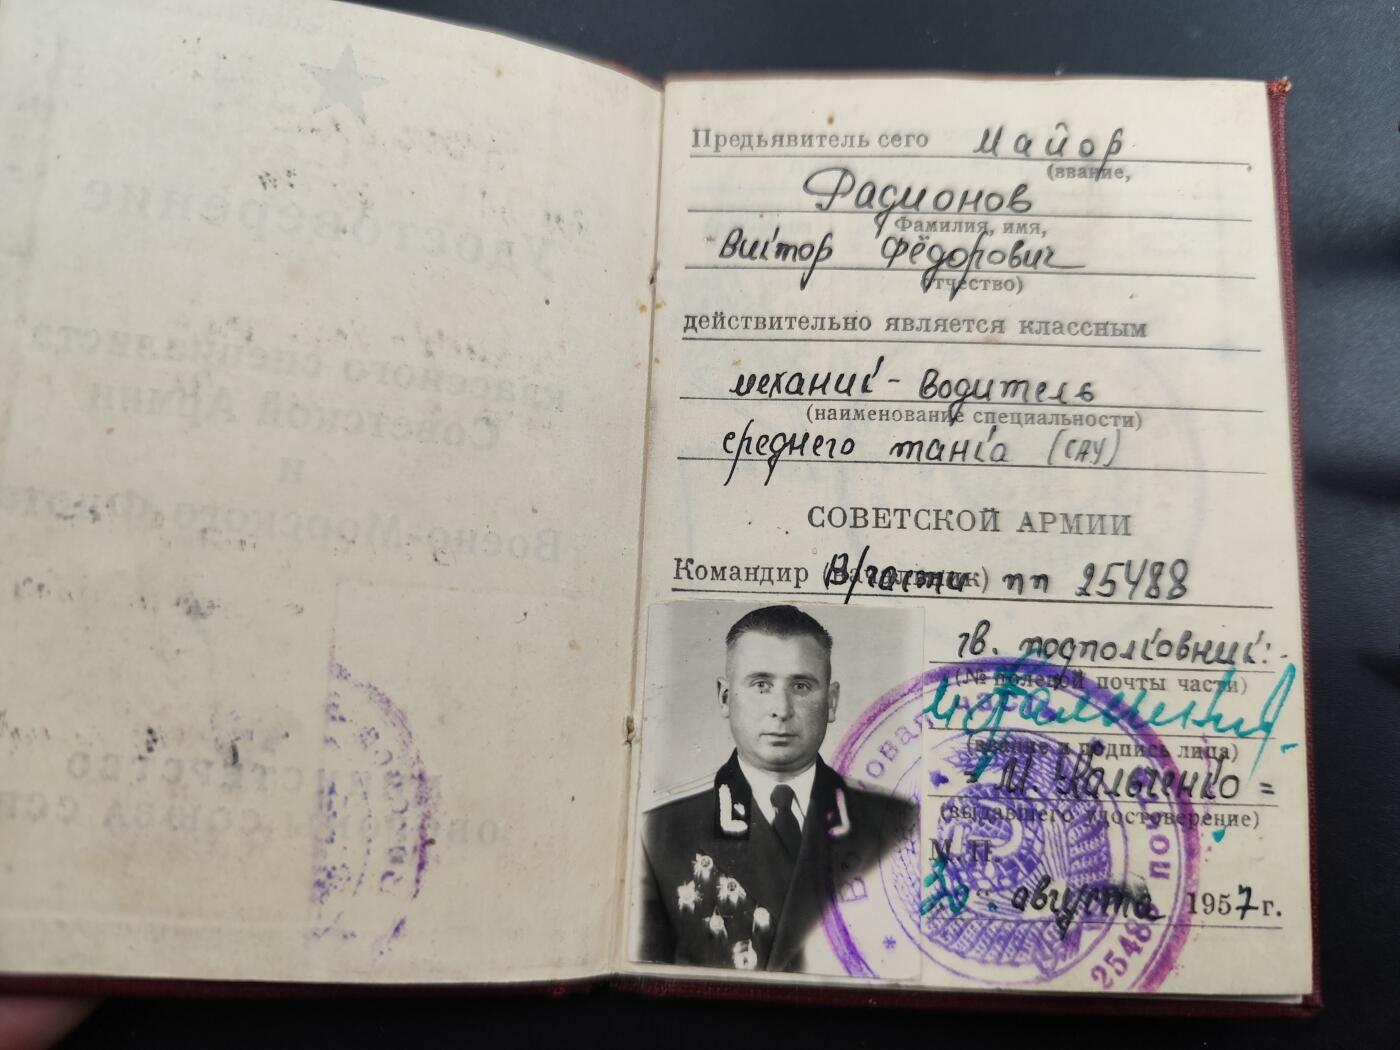 Предъявитель сего Майор
(звание,
Радионов
Фамилия, имя,
Виктор Фёдорович
отчество)
действительно является классным
механик-водитель
(наименование специальности)
среднего танка (САУ)
СОВЕТСКОЙ АРМИИ
Командир (Начальник) В/части пп 25488
гв. подполковник:
(№ полевой почты части)
(звание и подпись лица)
(выдавшего удостоверение)
М. П.
30 августа 1957 г.
Удостоверение
классного специалиста
Советской Армии
и
Военно-Морского Флота